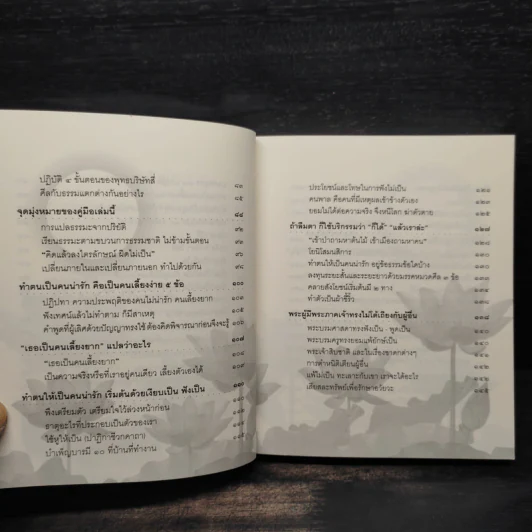 ปฏิบัติ ๔ ขั้นตอนของพุทธบริษัทสี่
ศีลกับธรรมแตกต่างกันอย่างไร ๘๐
จุดมุ่งหมายของคู่มือเล่มนี้ ๘๘
การแปลธรรมะจากปริยัติ
เรียนธรรมะตามขบวนการธรรมชาติ ไม่ข้ามขั้นตอน
“คิดแล้วลงไตรลักษณ์ ผิดไม่เป็น”
เปลี่ยนภายในและเปลี่ยนภายนอก ทำไปด้วยกัน
ทำตนเป็นคนน่ารัก คือเป็นคนเลี้ยงง่าย ๕ ข้อ ๑๐๐
ปฏิปทา ความประพฤติของคนไม่น่ารัก คนเลี้ยงยาก
ฟังเทคน์แล้วไม่ทำตาม ก็มีสาเหตุ
คำพูดที่ผู้เลิศด้วยปัญญาทรงใช้ ต้องคิดพิจารณาก่อนจึงจะรู้
“เธอเป็นคนเลี้ยงยาก” แปลว่าอะไร ๑๐๗
“เธอเป็นคนเลี้ยงยาก”
เป็นความจริงหรือที่เราอยู่คนเดียว เลี้ยงตัวเองได้
ทำตนให้เป็นคนน่ารัก เริ่มต้นด้วยเงียบเป็น ฟังเป็น
ฟังเตรียมตัว เตรียมใจไว้ล่วงหน้าก่อน
ธาตุอะไรที่ประกอบเป็นตัวของเรา
ใช้หูให้เป็น (ปาฏิกาชีวกคาถา)
บำเพ็ญบารมี ๑๐ ที่บ้านที่ทำงาน
ประโยชน์และโทษในการฟังไม่เป็น
คนพาล คือคนที่มีเหตุผลเข้าข้างตัวเอง
ยอมไม่ได้ต่อความจริง จึงหนีโลก ฆ่าตัวตาย ๑๒๕
ถ้าลืมตา ก็ใช้บริกรรมว่า “ก็ได้” “แล้วเราล่ะ” ๑๒๗
“เข้าป่าถามหาต้นไม้ เข้าเมืองถามหาคน”
โยนิโสมนสิการ
ทำตนให้เป็นคนน่ารัก อยู่ข้อธรรมข้อใดบ้าง
ลงทุนระยะสั้นและระยะยาวด้วยมรรคหมวดศีล ๓ ข้อ
คลายสังโยชน์เริ่มต้นมี ๒ ทาง
ทำตัวเป็นผ้าขี้ริ้ว
พระผู้มีพระภาคเจ้าทรงไม่โต้เถียงกับผู้อื่น
พระบรมศาสดาทรงฟังเป็น - พูดเป็น
พระบรมครูทรงยอมแพ้ยักษ์เป็น
พระเจ้าสิบชาติ และในเรื่องชาดกต่างๆ
การตำหนิติเตียนผู้อื่น
แพ้ไม่เป็น ทะเลาะกับเขา เราจะได้อะไร
เสียสละทรัพย์เพื่อรักษาอวัยวะ